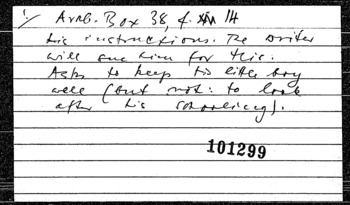 Arab. Box 38, f. 14
his instructions. The writer
will sue him for this.
Asks to keep his little boy
well (but not: to look
after his schooling).
101299